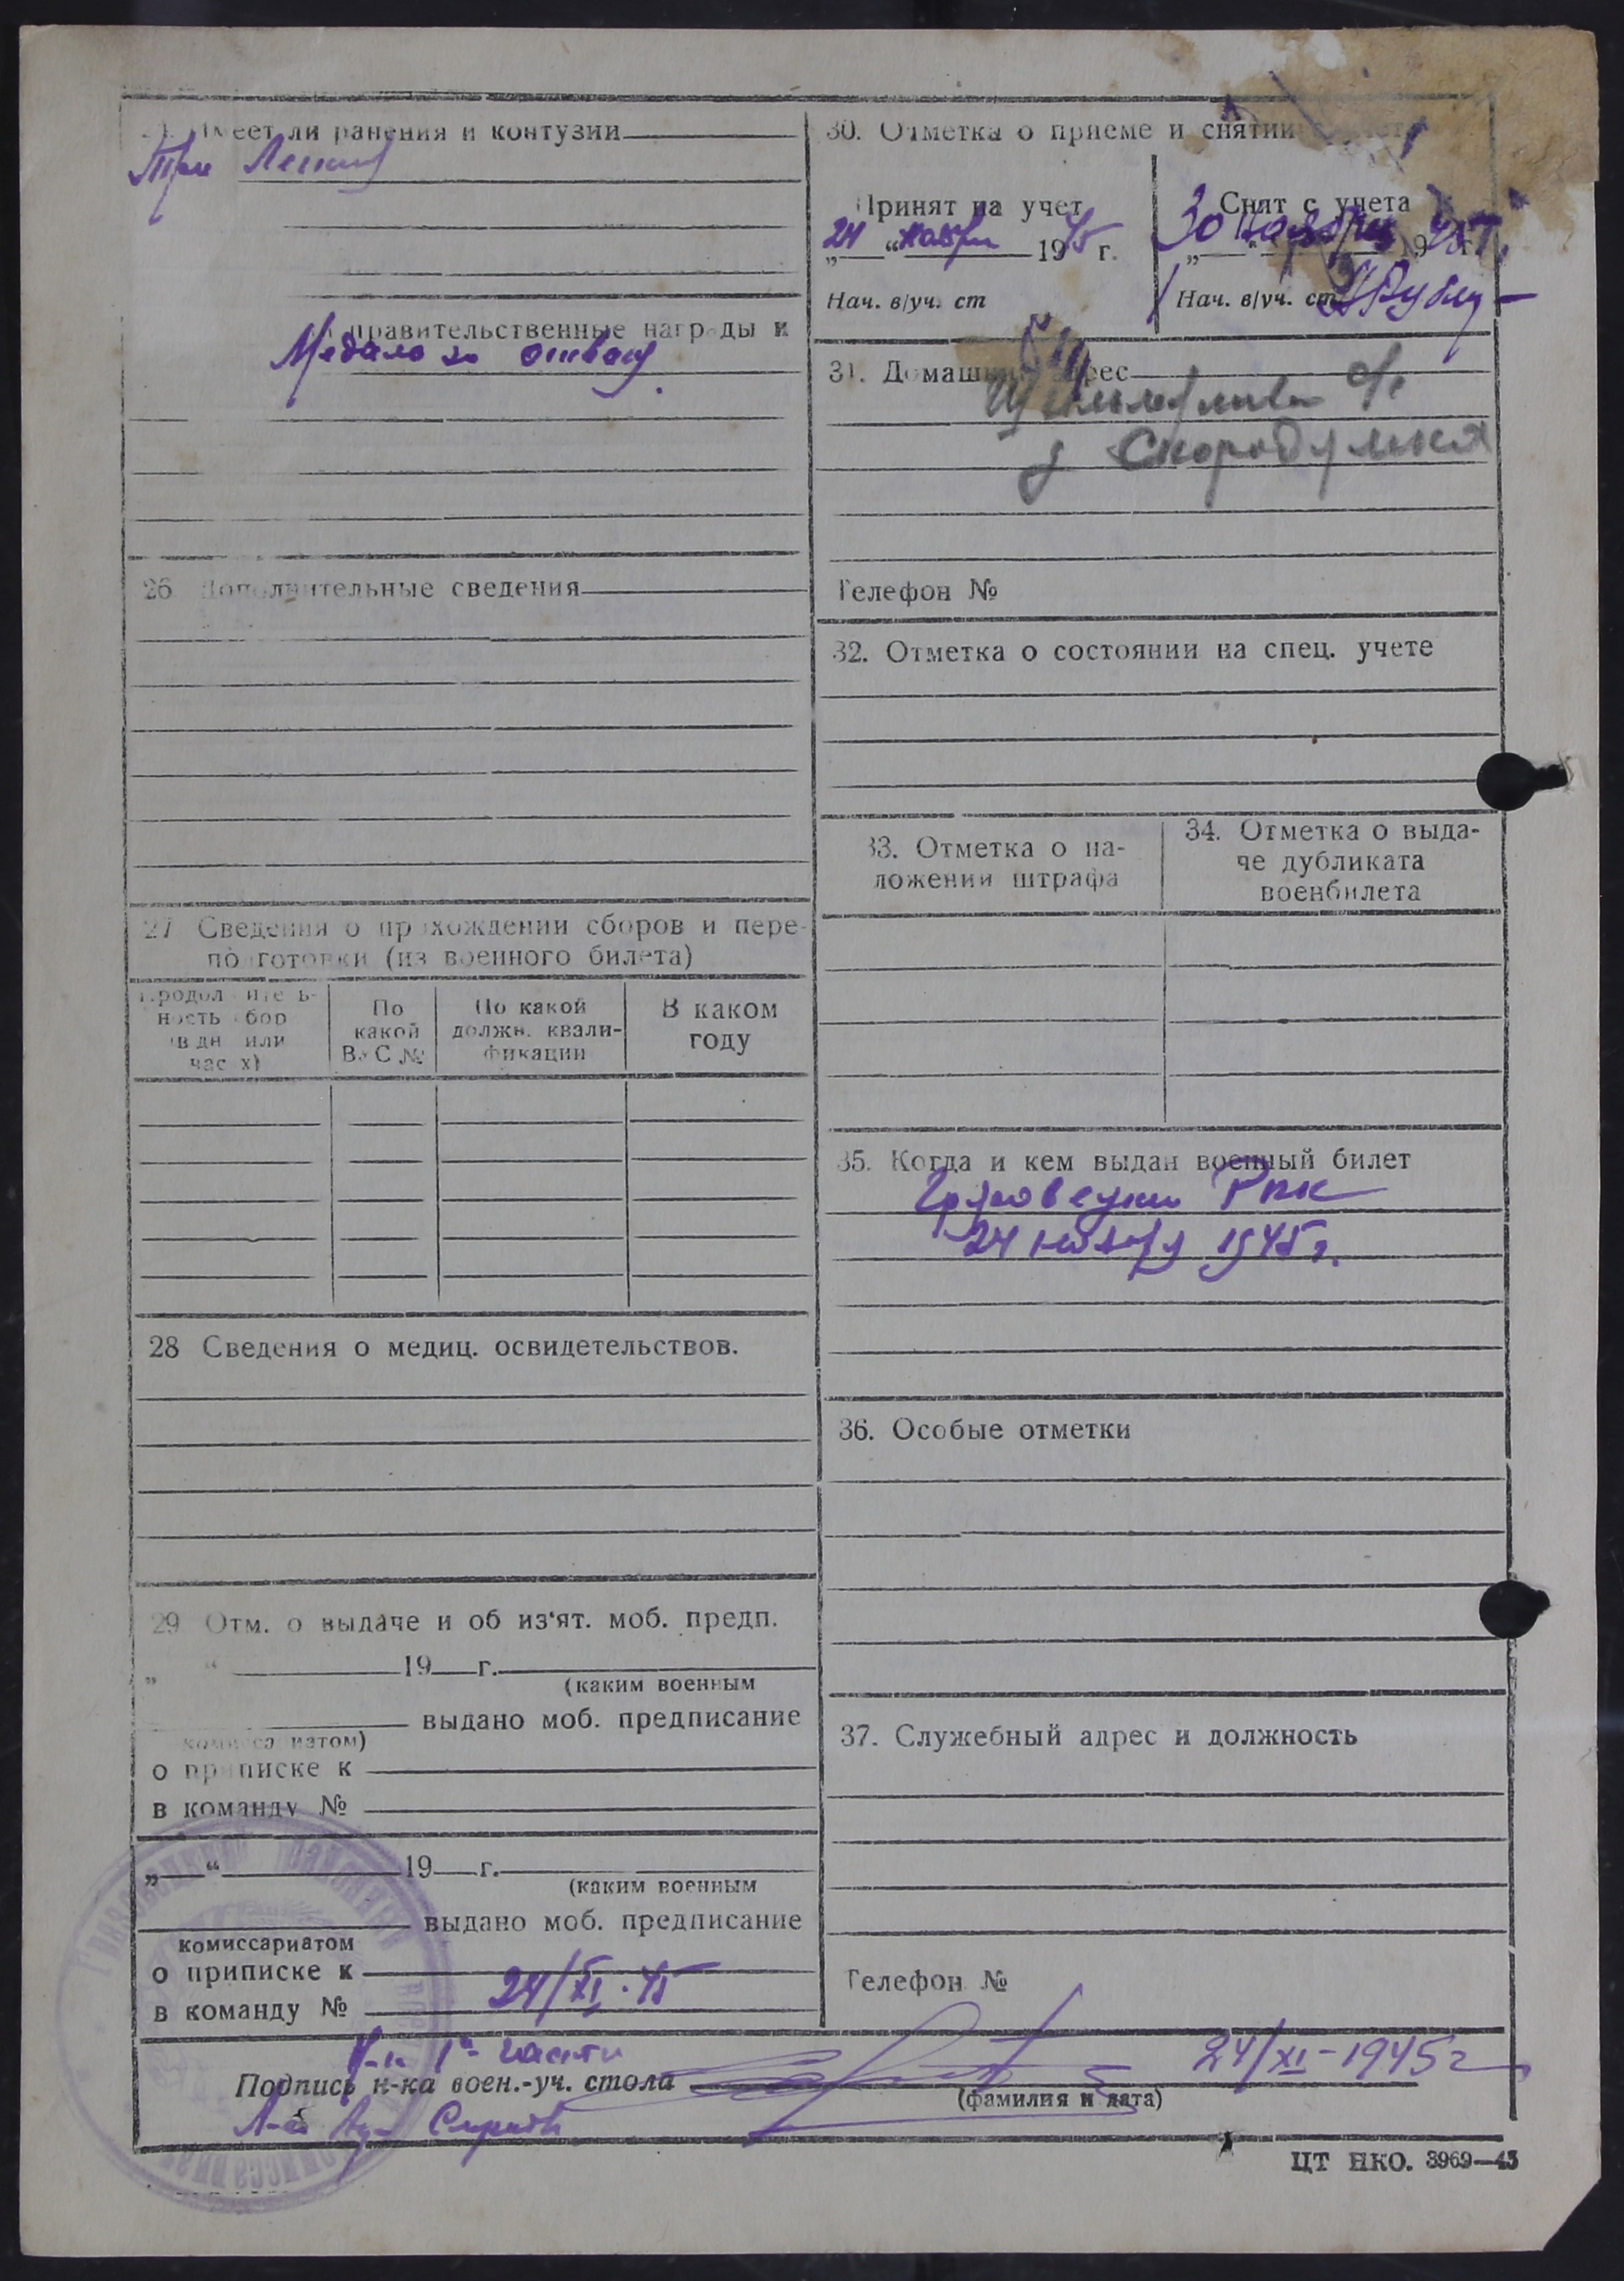 Имеет ли ранения и контузии
Три
правительственные награды и
Медаль за отвагу.
26 Дополнительные сведения
27 Сведения о прохождении сборов и пере-
подготовки (из военного билета)
Продолжитель-
ность сбор
(в дн или
часах)
По
какой
ВУС №
По какой
должн. квали-
фикации
В каком
году
28 Сведения о медиц. освидетельствов.
29 Отм. о выдаче и об из'ят. моб. предп.
„ “ 19 г.
(каким военным
выдано моб. предписание
комиссариатом)
о приписке к
в команду №
„ “ 19 г.
(каким военным
выдано моб. предписание
комиссариатом
о приписке к
24/XI.45
в команду №
30. Отметка о приеме и снятии
Принят на учет
24 “ ноября 1945 г.
Нач. в/уч. ст
Снят с учета
30 ноября 1945 г.
Нач. в/уч. ст
31. Домашний адрес
с/с
д Скородумка
Телефон №
32. Отметка о состоянии на спец. учете
33. Отметка о на-
ложении штрафа
34. Отметка о выда-
че дубликата
военбилета
35. Когда и кем выдан военный билет
Грязовецким РВК
24 ноября 1945 г.
36. Особые отметки
37. Служебный адрес и должность
Телефон №
Н-к 1й части
24/XI-1945 г
Подпись н-ка воен.-уч. стола
(фамилия и дата)
ЦТ НКО. 3969—43